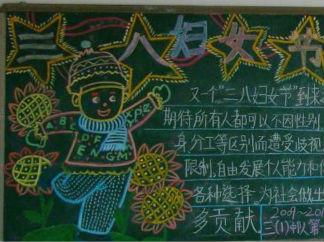 三八妇女节
又个"三八妇女节"到来
期待所有人都可以不因性别
身分工等区别而遭受歧视
限制,自由发展个人能力和
各种选择,为社会做出
多贡献
2009~201
三(1)中队第